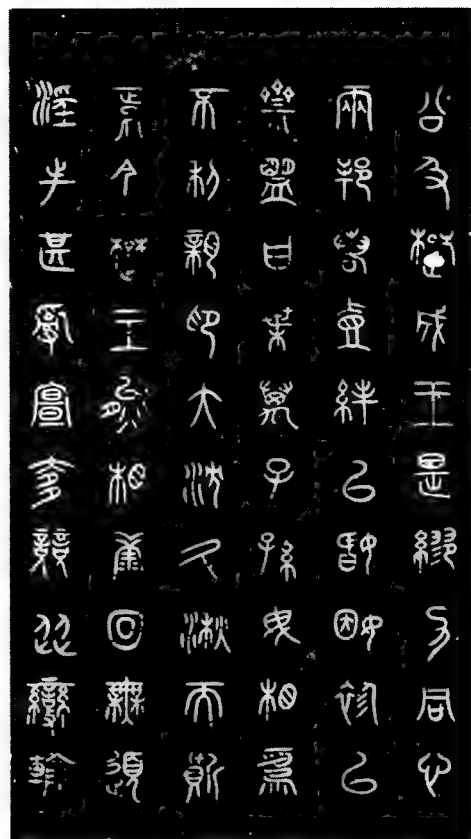 公及楚成王是繆力同心
兩邦若壹絆以婚姻袗以
齋盟曰枼萬子孫毋相為
不利親卬大沈久湫而質
焉今楚王熊相康回無道
淫失甚亂宣奓競從變輸